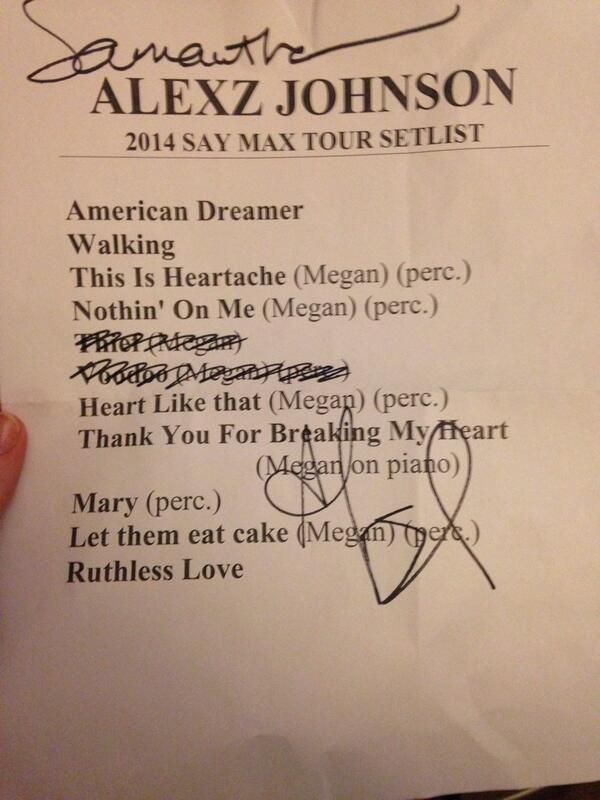 Samantha
ALEXZ JOHNSON
2014 SAY MAX TOUR SETLIST
American Dreamer
Walking
This Is Heartache (Megan) (perc.)
Nothin' On Me (Megan) (perc.)
Thief (Megan)
Voodoo (Megan) (perc)
Heart Like that (Megan) (perc.)
Thank You For Breaking My Heart
(Megan on piano)
Mary (perc.)
Let them eat cake (Megan) (perc.)
Ruthless Love